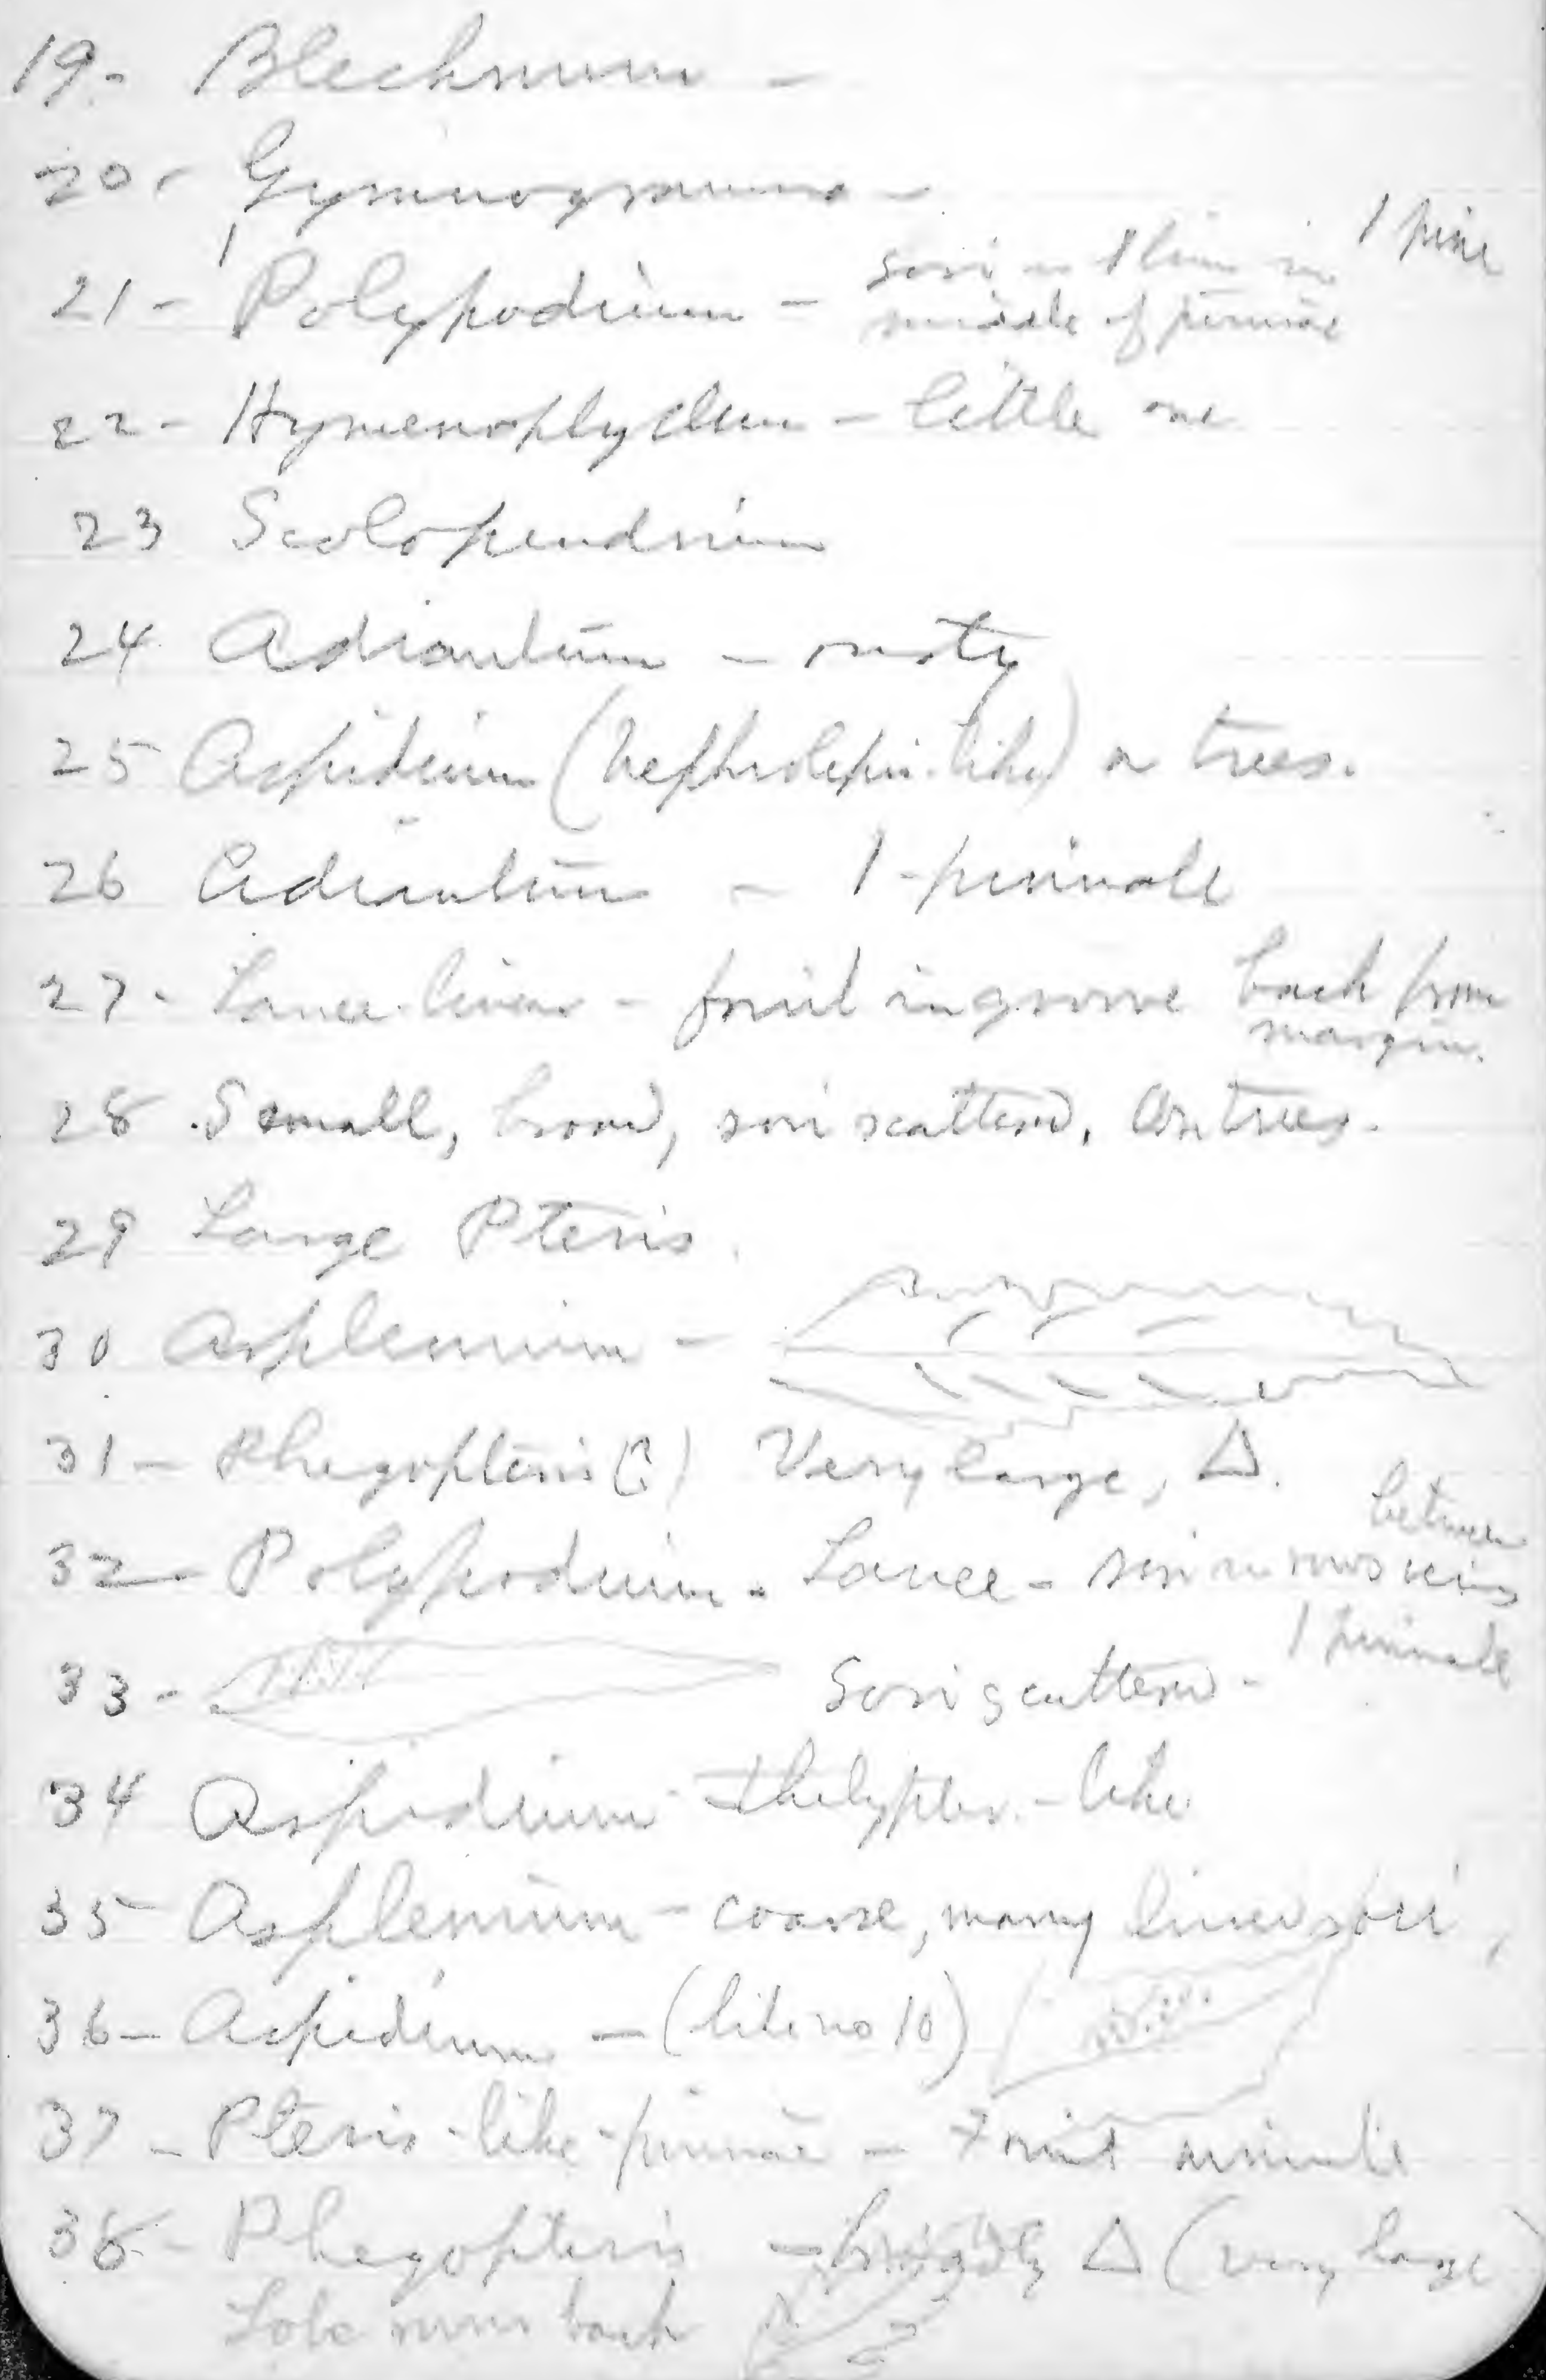 19- Blechnum -
20- Gymnogramme -
21- Polypodium - sori in 1 line in 1 pinn
middle of pinnae
22- Hymenophyllum - little one
23 Scolopendrium
24 Adiantum - rusty
25 Aspidium (Nephrolepis-like) on trees.
26 Adiantum - 1-pinnate
27- Lance-linear - fruit in groove back from
margin.
28 Small, broad, sori scattered. On trees.
29 Large Pteris.
30 Asplenium -
31- Phegopteris (?) Very large, Δ.
32- Polypodium. Lance - sori in rows between veins
1 pinnate
33- Sori scattered -
34 Aspidium thelypter.-like
35- Asplenium - coarse, many linear sori,
36- Aspidium - (like no 10)
37- Pteris-like-pinnae - Fruit minute
38- Phegopteris - broadly Δ (very large)
Lobe runs back